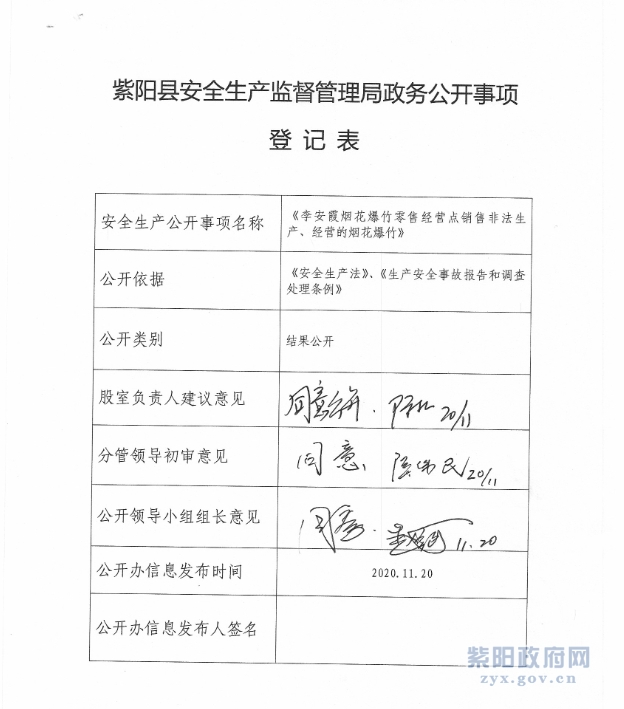 紫阳县安全生产监督管理局政务公开事项
登 记 表
安全生产公开事项名称
《李安霞烟花爆竹零售经营点销售非法生
产、经营的烟花爆竹》
公开依据
《安全生产法》、《生产安全事故报告和调查
处理条例》
公开类别
结果公开
股室负责人建议意见
同意公开. 20/11
分管领导初审意见
同意 20/11
公开领导小组组长意见
同意. 11.20
公开办信息发布时间
2020.11.20
公开办信息发布人签名
紫阳政府网
zyx.gov.cn